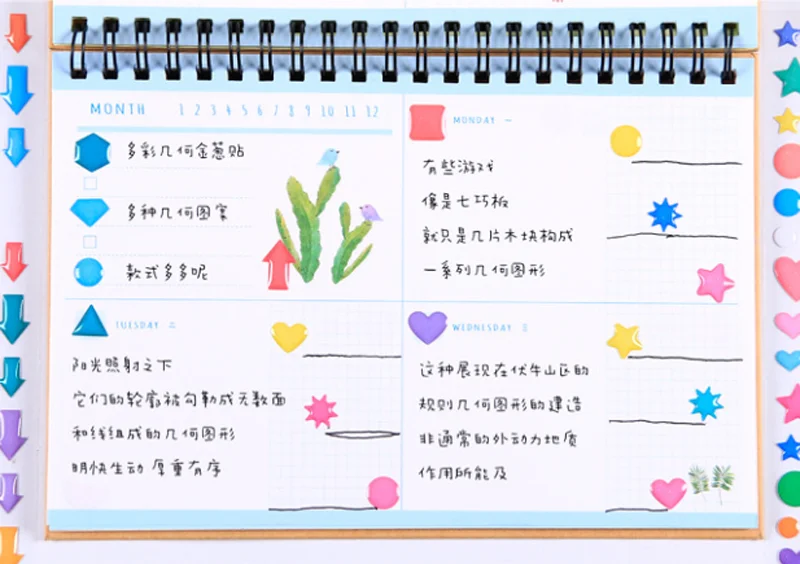 MONTH 1 2 3 4 5 6 7 8 9 10 11 12
多彩几何金葱贴
多种几何图案
款式多多呢
MONDAY 一
有些游戏
像是七巧板
就只是几片木块构成
一系列几何图形
TUESDAY 二
阳光照射之下
它们的轮廓被勾勒成无数面
和线组成的几何图形
明快生动 厚重有序
WEDNESDAY 三
这种展现在伏牛山区的
规则几何图形的建造
非通常的外动力地质
作用所能及